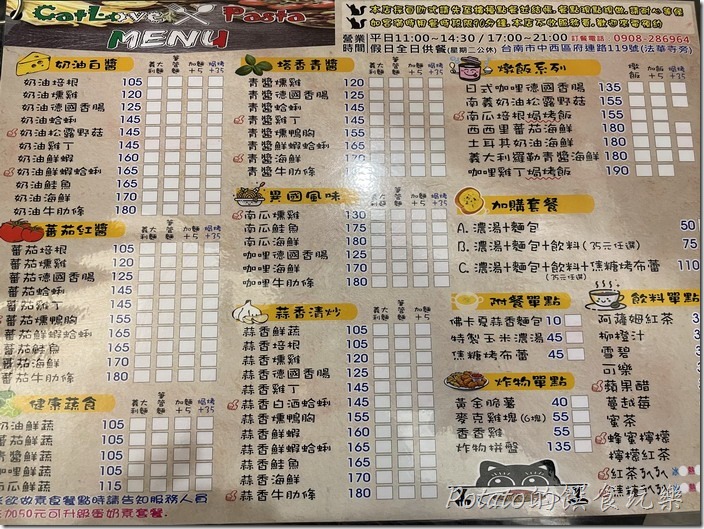 CatLove Pasta
MENU
營業 平日11:00~14:30 / 17:00~21:00 訂餐電話:0908-286964
時間 假日全日供餐(星期二公休) 台南市中西區府連路119號(法華寺旁)
奶油白醬
義大利麵 筆管麵+5 加麵+5 焗烤+35
奶油培根 105
奶油燻雞 120
奶油德國香腸 125
奶油蛤蜊 145
奶油松露野菇 145
奶油雞丁 145
奶油鮮蝦 160
奶油鮮蝦蛤蜊 165
奶油鮭魚 165
奶油海鮮 170
奶油牛肋條 180
蕃茄紅醬
蕃茄培根 105
蕃茄燻雞 120
蕃茄德國香腸 125
蕃茄蛤蜊 145
蕃茄雞丁 145
蕃茄燻鴨胸 155
蕃茄鮮蝦蛤蜊 165
蕃茄鮭魚 165
蕃茄海鮮 170
蕃茄牛肋條 180
健康蔬食
義大利麵 筆管麵+5 加麵+5 焗烤+35
奶油鮮蔬 105
鮮蔬 105
鮮蔬 105
鮮蔬 105
鮮蔬 115
加50元可升級蛋奶素套餐.
塔香青醬
義大利麵 筆管麵+5 加麵+5 焗烤+35
青醬燻雞 120
青醬德國香腸 125
青醬蛤蜊 145
青醬雞丁 145
青醬燻鴨胸 155
青醬鮮蝦蛤蜊 165
青醬海鮮 170
青醬牛肋條 180
異國風味
南瓜燻雞 130
南瓜鮭魚 175
南瓜海鮮 180
咖哩德國香腸 125
咖哩雞丁 145
咖哩海鮮 170
咖哩牛肋條 180
蒜香清炒
義大利麵 筆管麵+5 加麵+5 焗烤+35
蒜香鮮蔬 105
蒜香培根 105
蒜香燻雞 120
蒜香德國香腸 125
蒜香雞丁 145
蒜香白酒蛤蜊 145
蒜香燻鴨胸 155
蒜香鮮蝦 160
蒜香鮮蝦蛤蜊 165
蒜香鮭魚 165
蒜香海鮮 170
蒜香牛肋條 180
燉飯系列
燉飯 加飯+5 焗烤+35
日式咖哩德國香腸 135
南義奶油松露野菇 155
南瓜培根焗烤飯 155
西西里蕃茄海鮮 180
土耳其奶油海鮮 180
義大利羅勒青醬海鮮 180
咖哩雞丁焗烤飯 190
加購套餐
A. 濃湯+麵包 50
B. 濃湯+麵包+飲料(35元任選) 75
C. 濃湯+麵包+飲料+焦糖烤布蕾 110
(35元任選)
附餐單點
佛卡夏蒜香麵包 10
特製玉米濃湯 45
焦糖烤布蕾 45
炸物單點
黃金脆薯 40
麥克雞塊(6塊) 55
香香雞 55
炸物拼盤 135
飲料單點
阿薩姆紅茶
柳橙汁
雪碧
可樂
蘋果醋
蔓越莓
蜜茶
蜂蜜檸檬
檸檬紅茶
紅茶ㄋㄟㄋㄟ 冰 熱
Potato的餵食玩樂